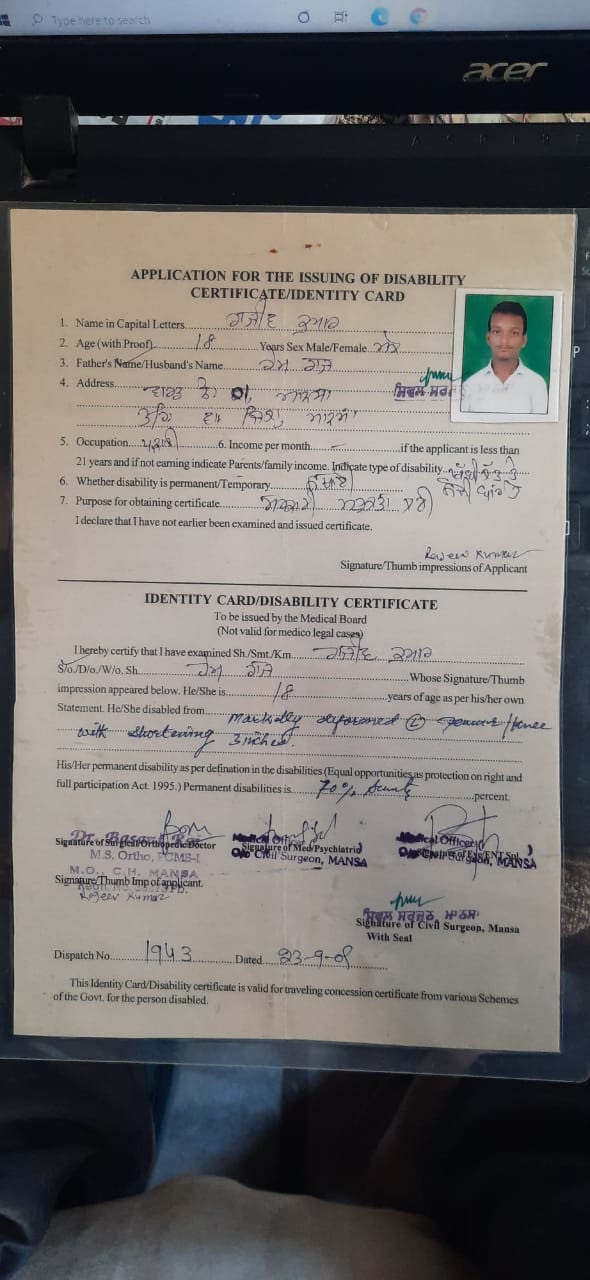 Type here to search
acer
APPLICATION FOR THE ISSUING OF DISABILITY
CERTIFICATE/IDENTITY CARD
1. Name in Capital Letters ਰਾਜੀਵ ਕੁਮਾਰ
2. Age (with Proof) 18 Years Sex Male/Female ਮੇਲ
3. Father's Name/Husband's Name ਹੇਮ ਰਾਜ
4. Address ਵਾਰਡ ਨੰ 01, ਮਾਨਸਾ
ਸਿਵਲ ਸਰਜਨ, ਮਾਨਸਾ
ਮਾਨਸਾ
5. Occupation 6. Income per month if the applicant is less than
21 years and if not earning indicate Parents/family income. Indicate type of disability
6. Whether disability is permanent/Temporary
7. Purpose for obtaining certificate
I declare that I have not earlier been examined and issued certificate.
Rajeev Kumar
Signature/Thumb impressions of Applicant
IDENTITY CARD/DISABILITY CERTIFICATE
To be issued by the Medical Board
(Not valid for medico legal cases)
I hereby certify that I have examined Sh./Smt./Km. ਰਾਜੀਵ ਕੁਮਾਰ
S/o./D/o./W/o. Sh. ਹੇਮ ਰਾਜ Whose Signature/Thumb
impression appeared below. He/She is 18 years of age as per his/her own
Statement. He/She disabled from markedly deformed (L) femur/knee
with shortening 3 inches.
His/Her permanent disability as per defination in the disabilities (Equal opportunities as protection on right and
full participation Act. 1995.) Permanent disabilities is 70% percent.
Signature of Surgical/Orthopedic Doctor
M.S, Ortho, PCMS-I
M.O., C.H. MANSA
Signature of Med/Psychiatrid
O/o Civil Surgeon, MANSA
Medical Officer
O/o Civil Surgeon, MANSA
Signature/Thumb Imp of applicant.
Rajeev Kumar
ਸਿਵਲ ਸਰਜਨ, ਮਾਨਸਾ
Signature of Civil Surgeon, Mansa
With Seal
Dispatch No. 1943 Dated 23-9-08
This Identity Card/Disability certificate is valid for traveling concession certificate from various Schemes
of the Govt. for the person disabled.